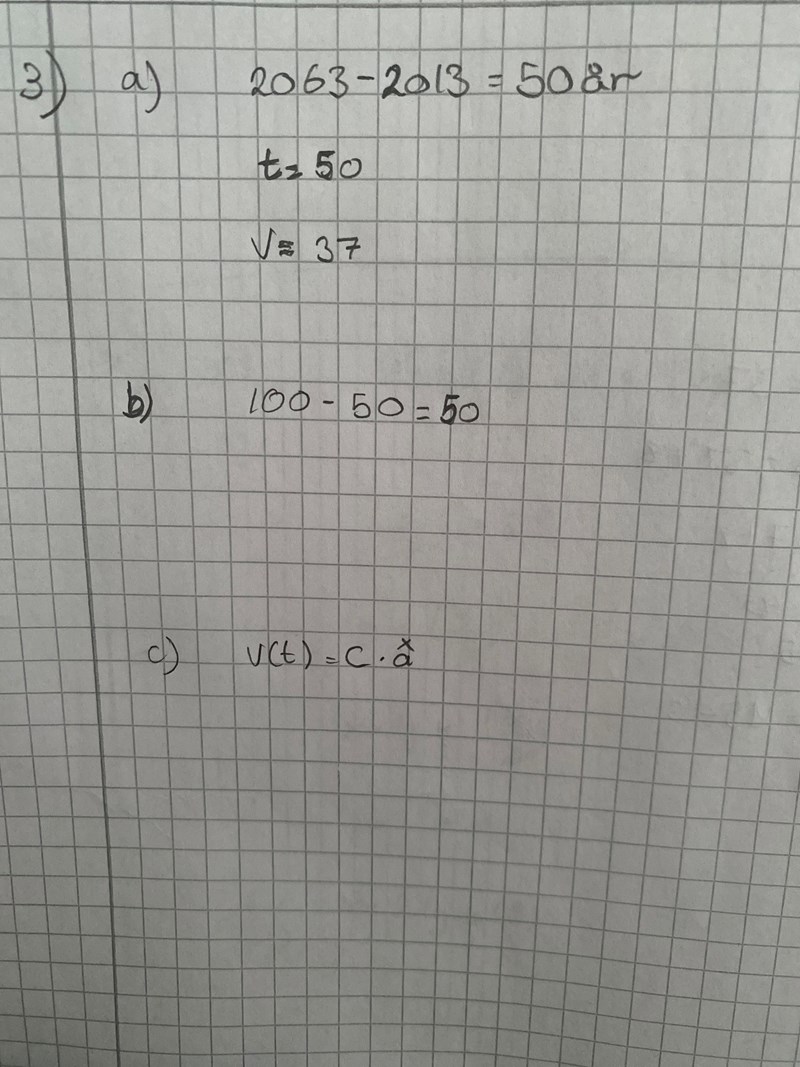 3) a) 2063-2013 = 50 år
t = 50
V ≈ 37
b) 100 - 50 = 50
c) V(t) = C · aˣ